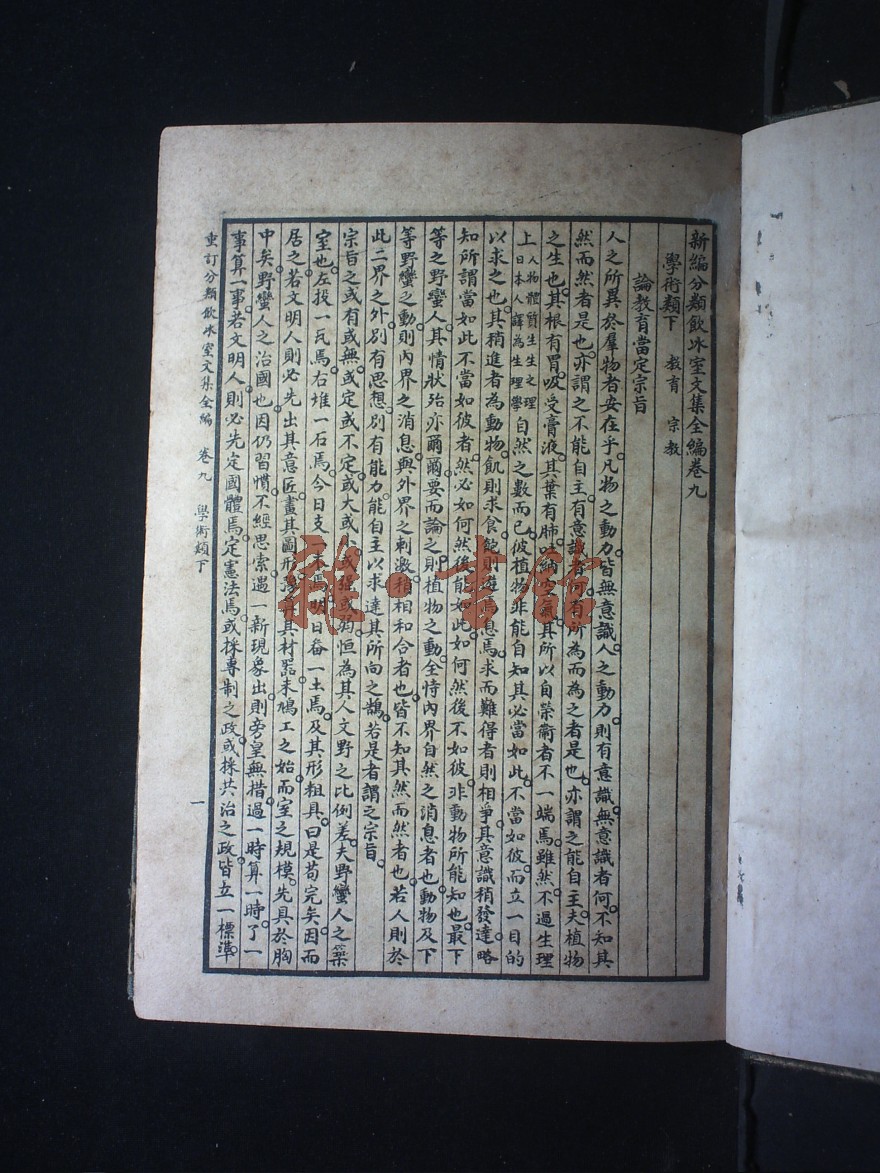 新編分類飲冰室文集全編卷九
學術類下 教育 宗教
論教育當定宗旨
人之所異於羣物者安在乎凡物之動力皆無意識人之動力則有意識無意識者何不知其
然而然者是也亦謂之不能自主有意識者何有所為而為之者是也亦謂之能自主夫植物
之生也其根有胃吸受膏液其葉有肺吐納空氣其所以自榮衛者不一端焉雖然不過生理
上人物體質生生之理日本人譯為生理學自然之數而已彼植物非能自知其必當如此不當如彼而立一目的
以求之也其稍進者為動物飢則求食飽則遊焉息焉求而難得者則相爭其意識稍發達略
知所謂當如此不當如彼者然必如何然後能如此如何然後不如彼非動物所能知也最下
等之野蠻人其情狀殆亦爾爾要而論之則植物之動全恃內界自然之消息者也動物及下
等野蠻之動則內界之消息與外界之刺激稍相和合者也皆不知其然而然者也若人則於
此二界之外別有思想別有能力能自主以求達其所向之鵠若是者謂之宗旨
宗旨之或有或無或定或不定或大或小或强或弱恒為其人文野之比例差夫野蠻人之築
室也左投一瓦焉右堆一石焉今日支一木焉明日畚一土焉及其形粗具曰是苟完矣因而
居之若文明人則必先出其意匠畫其圖形豫算其材器未鳩工之始而室之規模先具於胸
中矣野蠻人之治國也因仍習慣不經思索遇一新現象出則旁皇無措過一時算一時了一
事算一事若文明人則必先定國體焉定憲法焉或採專制之政或採共治之政皆立一標準
重訂分類飲冰室文集全編 卷九 學術類下 一
雜·書館